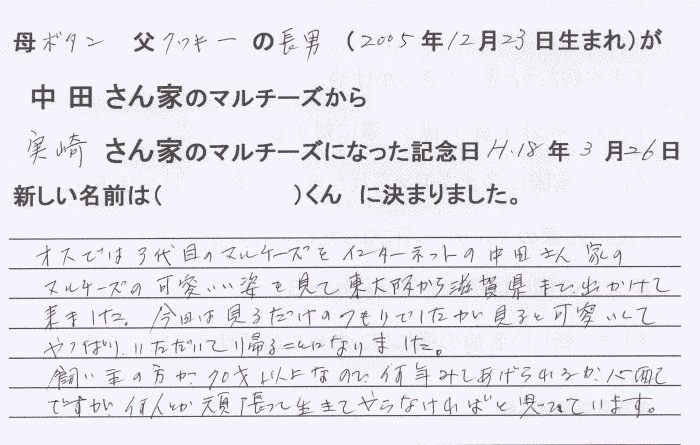 母ボタン 父クッキー の長男 (2005年12月23日生まれ)が
中田さん家のマルチーズから
実崎 さん家のマルチーズになった記念日 H.18年3月26日
新しい名前は( )くん に決まりました。
オスでは3代目のマルチーズをインターネットの中田さん家の
マルチーズの可愛いい姿を見て東大阪から滋賀県まで出かけて
来ました。今回は見るだけのつもりでしたが見ると可愛いくて
やっぱり、いただいて帰ることになりました。
飼い主の方が70才以上なので何年みてあげられるか、心配
ですが、何とか頑張って生きてやらなければと思っています。